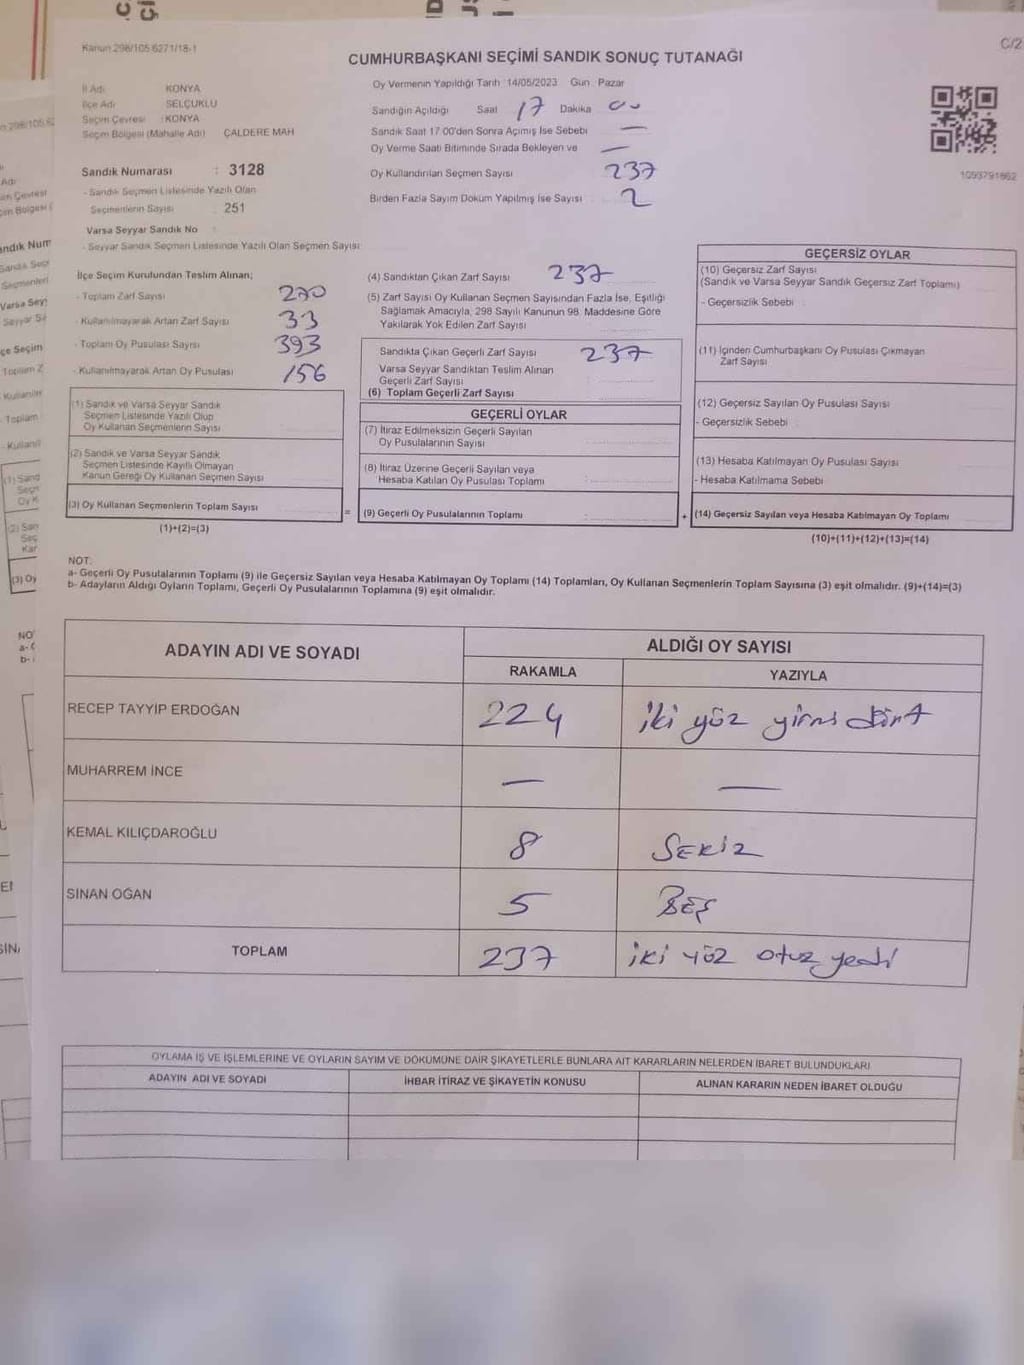 Kanun 298/105,6271/18-1
C/2
CUMHURBAŞKANI SEÇİMİ SANDIK SONUÇ TUTANAĞI
İl Adı KONYA
İlçe Adı SELÇUKLU
Seçim Çevresi : KONYA
Seçim Bölgesi (Mahalle Adı) ÇALDERE MAH
Sandık Numarası : 3128
- Sandık Seçmen Listesinde Yazılı Olan
Seçmenlerin Sayısı 251
Varsa Seyyar Sandık No
- Seyyar Sandık Seçmen Listesinde Yazılı Olan Seçmen Sayısı
Oy Vermenin Yapıldığı Tarih 14/05/2023 Gün Pazar
Sandığın Açıldığı Saat 17 Dakika 00
Sandık Saat 17:00'den Sonra Açımış İse Sebebi —
Oy Verme Saati Bitiminde Sırada Bekleyen ve —
Oy Kullandırılan Seçmen Sayısı 237
Birden Fazla Sayım Döküm Yapılmış İse Sayısı 2
1093791862
İlçe Seçim Kurulundan Teslim Alınan;
- Toplam Zarf Sayısı 270
- Kullanılmayarak Artan Zarf Sayısı 33
- Toplam Oy Pusulası Sayısı 393
- Kullanılmayarak Artan Oy Pusulası 156
(1) Sandık ve Varsa Seyyar Sandık
Seçmen Listesinde Yazılı Olup
Oy Kullanan Seçmenlerin Sayısı
(2) Sandık ve Varsa Seyyar Sandık
Seçmen Listesinde Kayıtlı Olmayan
Kanun Gereği Oy Kullanan Seçmen Sayısı
(3) Oy Kullanan Seçmenlerin Toplam Sayısı
(1)+(2)=(3)
=
(4) Sandıktan Çıkan Zarf Sayısı 237
(5) Zarf Sayısı Oy Kullanan Seçmen Sayısından Fazla İse, Eşitliği
Sağlamak Amacıyla, 298 Sayılı Kanunun 98. Maddesine Göre
Yakılarak Yok Edilen Zarf Sayısı
Sandıkta Çıkan Geçerli Zarf Sayısı 237
Varsa Seyyar Sandıktan Teslim Alınan
Geçerli Zarf Sayısı
(6) Toplam Geçerli Zarf Sayısı
GEÇERLİ OYLAR
(7) İtiraz Edilmeksizin Geçerli Sayılan
Oy Pusulalarının Sayısı
(8) İtiraz Üzerine Geçerli Sayılan veya
Hesaba Katılan Oy Pusulası Toplamı
(9) Geçerli Oy Pusulalarının Toplamı
+
GEÇERSİZ OYLAR
(10) Geçersiz Zarf Sayısı
(Sandık ve Varsa Seyyar Sandık Geçersiz Zarf Toplamı)
- Geçersizlik Sebebi
(11) İçinden Cumhurbaşkanı Oy Pusulası Çıkmayan
Zarf Sayısı
(12) Geçersiz Sayılan Oy Pusulası Sayısı
- Geçersizlik Sebebi
(13) Hesaba Katılmayan Oy Pusulası Sayısı
- Hesaba Katılmama Sebebi
(14) Geçersiz Sayılan veya Hesaba Katılmayan Oy Toplamı
(10)+(11)+(12)+(13)=(14)
NOT:
a- Geçerli Oy Pusulalarının Toplamı (9) ile Geçersiz Sayılan veya Hesaba Katılmayan Oy Toplamı (14) Toplamları, Oy Kullanan Seçmenlerin Toplam Sayısına (3) eşit olmalıdır. (9)+(14)=(3)
b- Adayların Aldığı Oyların Toplamı, Geçerli Oy Pusulalarının Toplamına (9) eşit olmalıdır.
ADAYIN ADI VE SOYADI ALDIĞI OY SAYISI
RAKAMLA YAZIYLA
RECEP TAYYİP ERDOĞAN 224 iki yüz yirmi dört
MUHARREM İNCE — —
KEMAL KILIÇDAROĞLU 8 SEKİZ
SİNAN OĞAN 5 BEŞ
TOPLAM 237 iki yüz otuz yedi
OYLAMA İŞ VE İŞLEMLERİNE VE OYLARIN SAYIM VE DÖKÜMÜNE DAİR ŞİKAYETLERLE BUNLARA AİT KARARLARIN NELERDEN İBARET BULUNDUKLARI
ADAYIN ADI VE SOYADI İHBAR İTİRAZ VE ŞİKAYETİN KONUSU ALINAN KARARIN NEDEN İBARET OLDUĞU